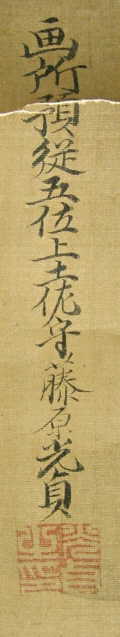 画所預従五位上土佐守藤原光貞